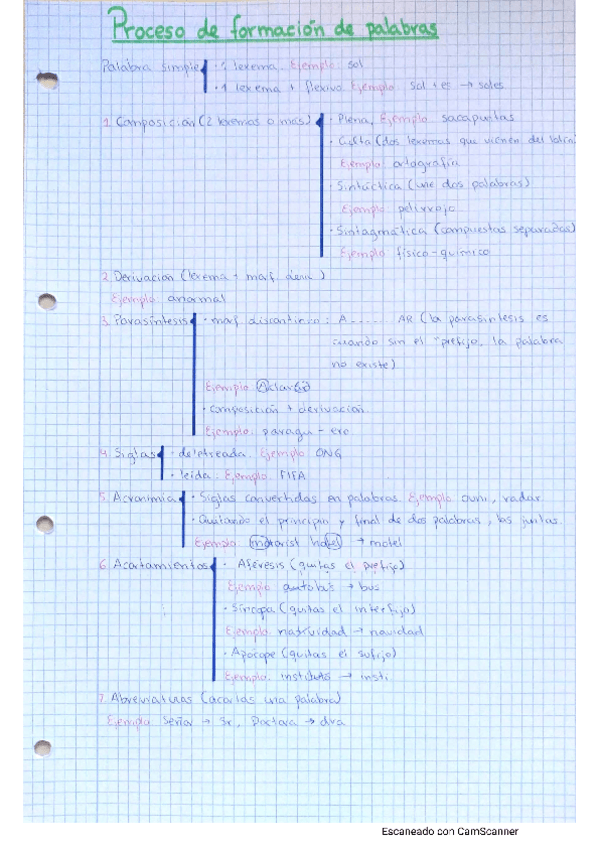 Proceso de formación de palabras
Palabra simple · 1 lexema. Ejemplo: sol
· 1 lexema + flexivo. Ejemplo: sol + es → soles
1. Composición (2 lexemas o más) · Plena, Ejemplo sacapuntas
· Culta (dos lexemas que vienen del latín)
Ejemplo ortografía
· Sintáctica (une dos palabras)
Ejemplo pelirrojo
· Sintagmática (compuestas separadas)
Ejemplo físico-químico
2. Derivación (lexema + morf. deriv.)
Ejemplo anormal
3. Parasíntesis · morf. discontinuo: A..... AR (la parasíntesis es
cuando sin el prefijo, la palabra
no existe)
Ejemplo Aclarar
· composición + derivación
Ejemplo: paragu-ero
4. Siglas · deletreada. Ejemplo ONG
· leída. Ejemplo. FIFA
5. Acronimia · Siglas convertidas en palabras. Ejemplo ovni, radar
· Quitando el principio y final de dos palabras, las juntas.
Ejemplo motorist hotel → motel
6. Acortamientos · Aféresis (quitas el prefijo)
Ejemplo autobús → bus
· Síncopa (quitas el interfijo)
Ejemplo natividad → navidad
· Apócope (quitas el sufijo)
Ejemplo. instituto → insti
7. Abreviaturas (acortas una palabra)
Ejemplo Señor → Sr, Doctora → dra
Escaneado con CamScanner